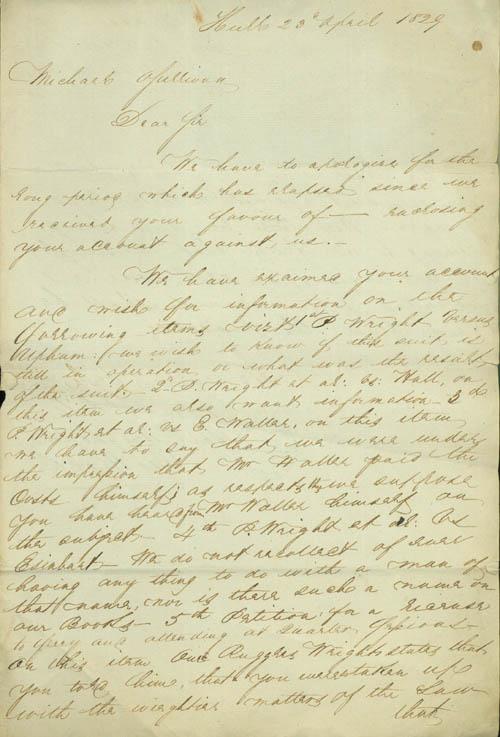 Hull 23d April 1829
Michael OSullivan
Dear Sir
We have to apologise for the
long period which has elapsed since we
received your favour of — enclosing
your account against us. —
We have examined your account
and wish for information on the
following items vizt 1st P Wright versus
we wish to know if this suit is
still in operation or what was the result
of the suit. 2d P. Wright et al: vs: Hall, on
this item we also want information 3d
P. Wright et al: vs E. Waller, on this item
we have to say that we were under
the impression that Mr Waller paid the
Costs himself; as respects this we suppose
you have heard from Mr Waller himself on
the subject. 4th P. Wright et al: vs
We do not recollect of ever
having any thing to do with a man of
that name, nor is there such a name on
our Books — 5th Petition for a
and attending at quarter Sessions —
On this item Our Ruggles Wright states that
you told him, that you were taken up
with the weightier matters of the Law
that